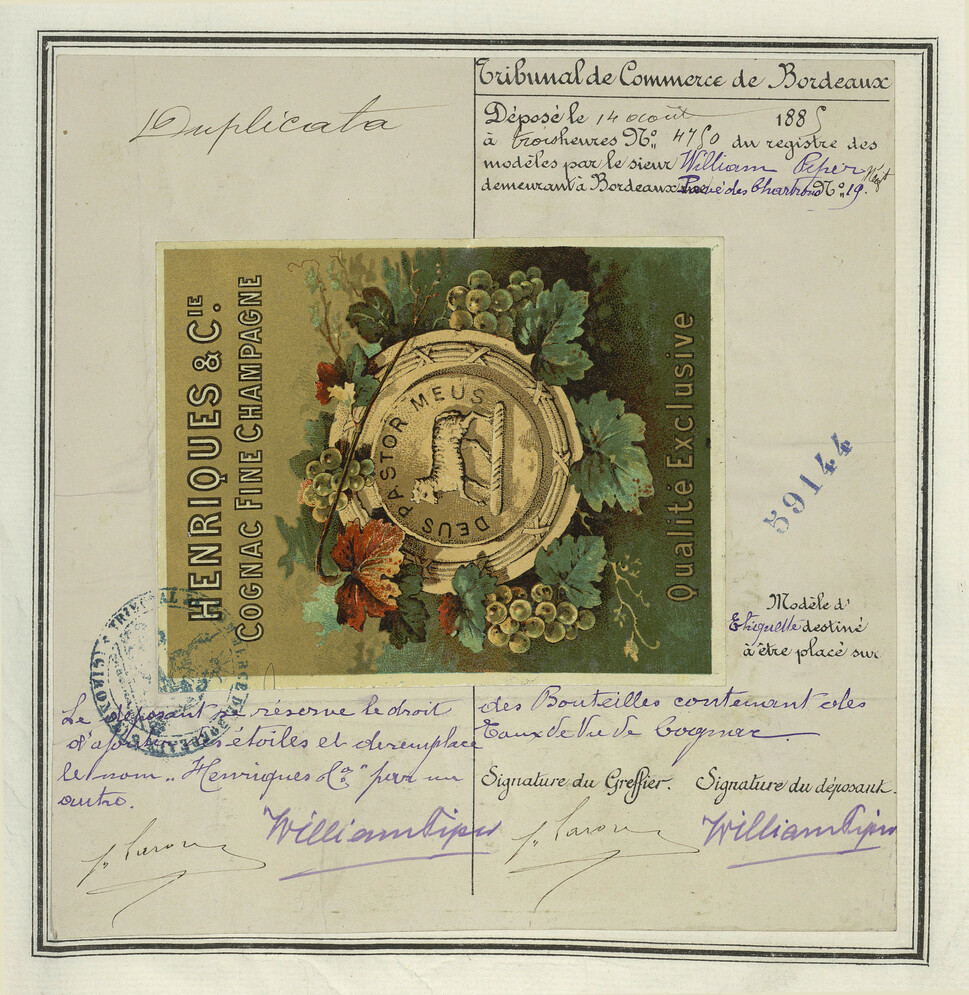 Duplicata
Tribunal de Commerce de Bordeaux
Déposé le 14 août 1885
à trois heures No. 4750 du registre des
modèles par le sieur William Piper Négt
demeurant à Bordeaux Pavé des Chartrons No. 19.
HENRIQUES & CIE.
COGNAC FINE CHAMPAGNE
DEUS PASTOR MEUS
Qualité Exclusive
59144
Modèle d'
Etiquette destiné
à être placé sur
des Bouteilles contenant des
Eaux de Vie de Cognac
Le déposant se réserve le droit
d'ajouter des étoiles et de remplacer
le nom „ Henriques & Co " par un
autre.
Signature du Greffier. Signature du déposant.
William Piper
William Piper